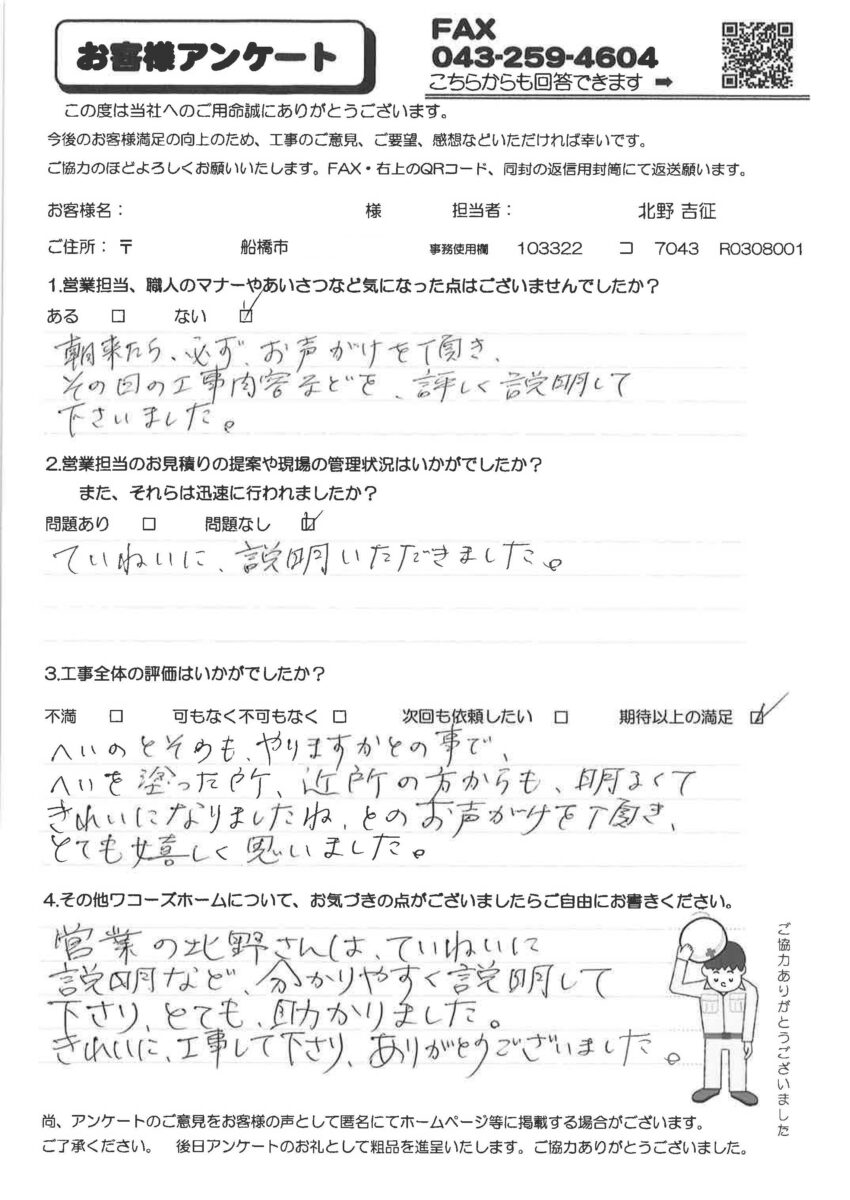 お客様アンケート
FAX
043-259-4604
こちらからも回答できます ➡
この度は当社へのご用命誠にありがとうございます。
今後のお客様満足の向上のため、工事のご意見、ご要望、感想などいただければ幸いです。
ご協力のほどよろしくお願いいたします。FAX・右上のQRコード、同封の返信用封筒にて返送願います。
お客様名： 様 担当者： 北野 吉征
ご住所：〒 船橋市 事務使用欄 103322 コ 7043 R0308001
1.営業担当、職人のマナーやあいさつなど気になった点はございませんでしたか？
ある □ ない ☑
朝来たら、必ず、お声がけを頂き、
その日の工事内容などを、詳しく説明して
下さいました。
2.営業担当のお見積りの提案や現場の管理状況はいかがでしたか？
また、それらは迅速に行われましたか？
問題あり □ 問題なし ☑
ていねいに、説明いただきました。
3.工事全体の評価はいかがでしたか？
不満 □ 可もなく不可もなく □ 次回も依頼したい □ 期待以上の満足 ☑
へいのとそうも、やりますかとの事で、
へいを塗った所、近所の方からも、明るくて
きれいになりましたね、とのお声がけを頂き、
とても嬉しく思いました。
4.その他ワコーズホームについて、お気づきの点がございましたらご自由にお書きください。
営業の北野さんは、ていねいに
説明など、分かりやすく説明して
下さり、とても、助かりました。
きれいに、工事して下さり、ありがとうございました。
ご協力ありがとうございました
尚、アンケートのご意見をお客様の声として匿名にてホームページ等に掲載する場合がございます。
ご了承ください。 後日アンケートのお礼として粗品を進呈いたします。ご協力ありがとうございました。